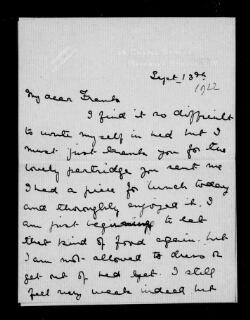 Sept 13th
1922
My dear Frank
I find it so difficult
to write myself in bed but I
must just thank you for the
lovely partridge you sent me
I had a piece for lunch today
and thoroughly enjoyed it. I
am just beginning to eat
that kind of food again. but
I am not allowed to dress or
get out of bed yet. I still
feel very weak indeed but